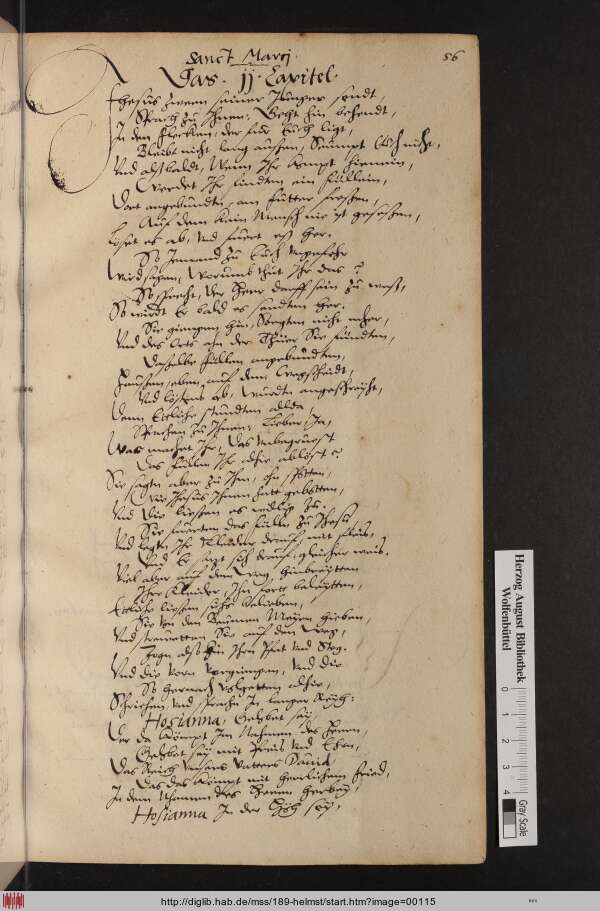 56
Sanct Marci.
Das. jj. Capitel.
Jhesus zween seiner Junger sendt,
Sprach zu Ihnen: Geht hin behendt,
In den Flecken, der fur Euch ligt,
Bleibt nicht lang aussen, Seumpt Euch nicht,
Und alsbaldt, Wenn Ihr kompt hienein,
Werdet Ihr finden ein füllein,
Dort angebunden, am futter fressen,
Auf dem kein Mensch nie ist gesessen,
Löset es ab, und fueret es her.
So Jemandt zu Euch ungefehr
Wird sagen, Worumb thut Ihr das?
So sprecht, der Herr darff sein zu was,
So wirdt Er bald es senden her.
Sie giengen hin, Sorgten nicht mher,
Und des Orts ahn der Thuer Sie fundten,
Dasselbe füllen angebundten,
Haussen, eben auf dem Wegscheidt,
Und lösens ab, wurden angeschreyht,
Denn Ettliche stundten alda,
Sprachen zu Ihnen: Lieber, Ja,
Was machet Ihr, das unbegruest
Das füllen Ihr alhie ablöst?
Sie sagten aber zu Ihn, ohn spotten,
Wie Jhesus Ihnen hatt gebotten,
Und die liessen es willig zu.
Sie fuerten das fülle zu Jhesu
Und legten Ihr Kleider drauf, mit fleis,
Und Er satzt sich drauf, gleicher weis.
Viel aber auf den Weg hinbreytten
Ihre Kleider, Ihn fort beleytten,
Ettliche liessen sichs belieben,
Sie von den Baumen Meyen hieben,
Und streweten Sie auf den Weg,
Zogen also hin Ihrn Pfat und Steg.
Und die vorn vorgiengen, und die
So hernach volgetten alhie,
Schriehen, und sprachen In langer Reyh:
Hosianna, Gelobet sey,
Der da kömpt Im Nahmen des Herrn,
Gelobet sey mit Preis und Ehrn,
Das Reich unsers Vatters David,
Das da kömpt mit herrlichem fried,
In dem Nhamen des Herren herbey,
Hosianna In der Höh sey,
Herzog August Bibliothek
Wolfenbüttel
0 1 2 3 4
Gray Scale
http://diglib.hab.de/mss/189-helmst/start.htm?image=00115